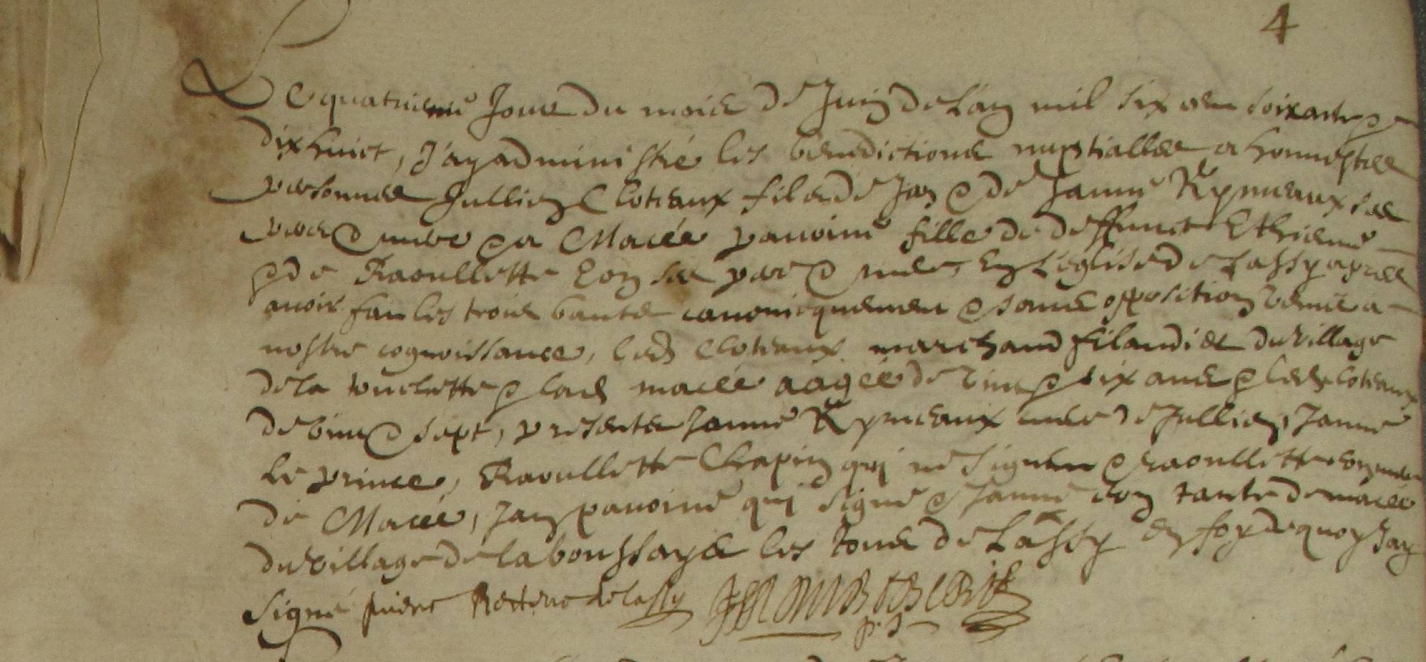 4
Le quatrieme Jour du mois de Juin de L'an mil six cen soixante &
dix huict, J'ay administré les benedictions nuptialles a honnestes
personnes Jullien Cloteaux fils de Jan & de Janne ses
pere & mere & a Macée pauoine fille de deffunct Ethienne
& de Raoullette Eon ses pere & mere, en L'eglise de Lassy apres
auoir fait les trois bans canonicquement & sans opposition venue a
nostre cognoissance, led Cloteaux marchand filandier du village
de la & lad macée aagée de vint & six ans & led Cloteaux
de vint & sept, presents Janne mere de Jullien, Janne
Le prince, Raoullette Chapin qui ne signent & Raoullette eon mere
de Macée, Jan pauoine qui signe & Janne eon tante de macée
du village de la boussaye les tous de Lassy en foy de quoy J'ay
signé Recteur de Lassy